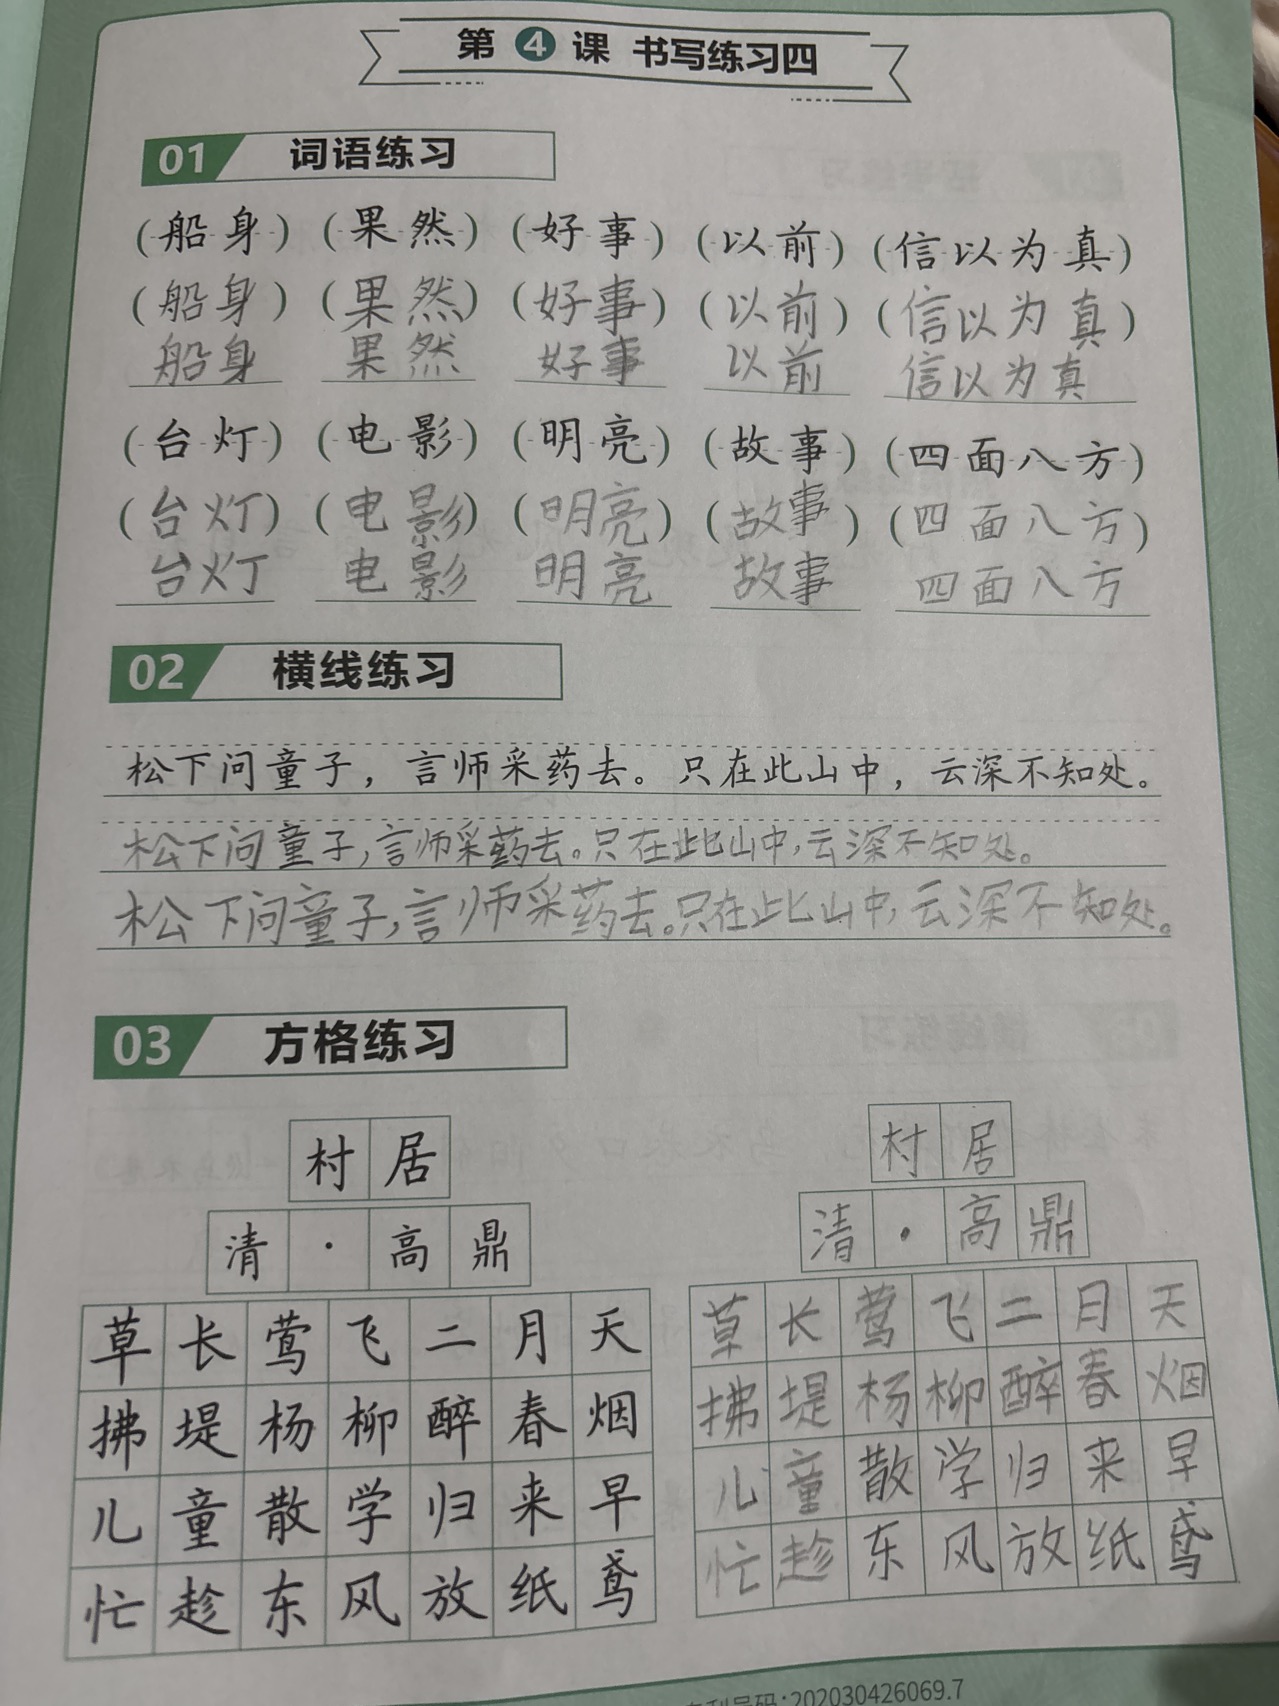 第4课 书写练习四
01 词语练习
(船身) (果然) (好事) (以前) (信以为真)
(船身) (果然) (好事) (以前) (信以为真)
船身 果然 好事 以前 信以为真
(台灯) (电影) (明亮) (故事) (四面八方)
(台灯) (电影) (明亮) (故事) (四面八方)
台灯 电影 明亮 故事 四面八方
02 横线练习
松下问童子，言师采药去。只在此山中，云深不知处。
松下问童子，言师采药去。只在此山中，云深不知处。
松下问童子，言师采药去。只在此山中，云深不知处。
03 方格练习
村居
清·高鼎
草长莺飞二月天
拂堤杨柳醉春烟
儿童散学归来早
忙趁东风放纸鸢
村居
清·高鼎
草长莺飞二月天
拂堤杨柳醉春烟
儿童散学归来早
忙趁东风放纸鸢
号码:202030426069.7